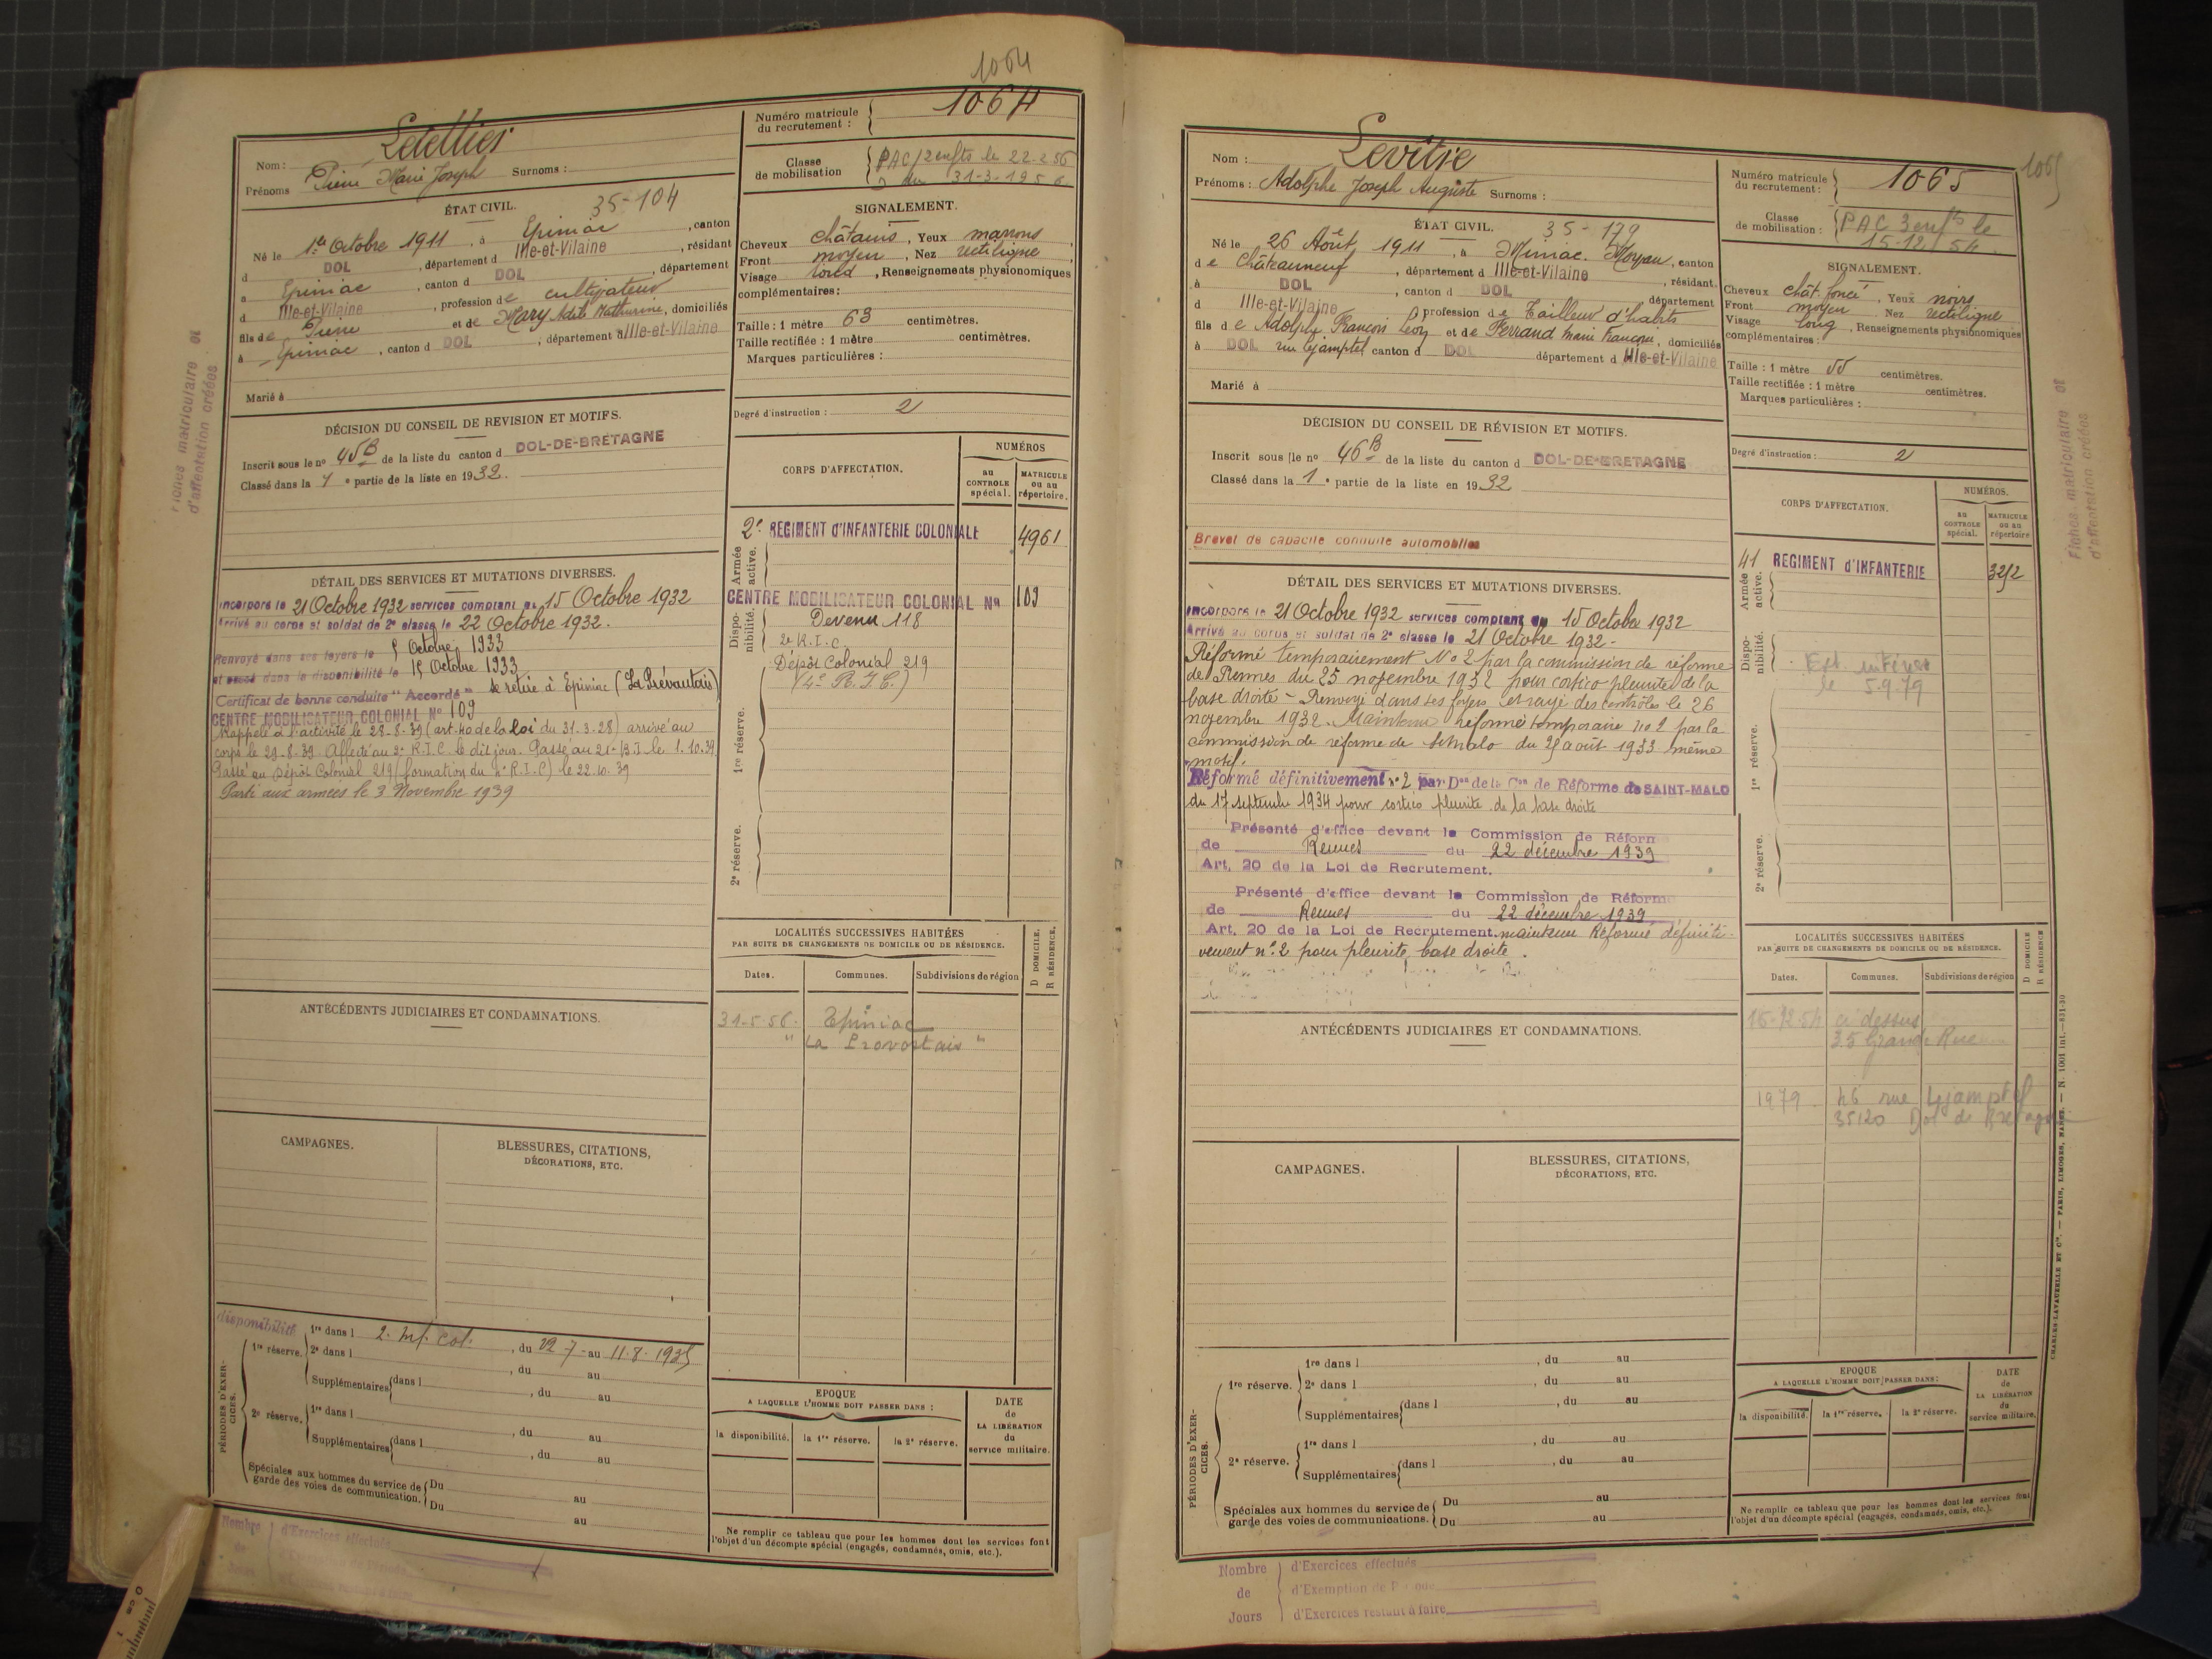 1064
Nom : Letellier
Prénoms Pierre Marie Joseph Surnoms :
Numéro matricule du recrutement : 1064
Classe de mobilisation PAC/2 enfts le 22-2 56
du 31-3-1956
ÉTAT CIVIL. 35-104
Né le 1er Octobre 1911, à Epiniac, canton
d DOL, département d Ille-et-Vilaine, résidant
à Epiniac, canton d DOL, département
d Ille-et-Vilaine, profession de cultivateur
fils de Pierre et de Mary Adèle Mathurine, domiciliés
à Epiniac, canton d DOL, département d Ille-et-Vilaine
Marié à
SIGNALEMENT.
Cheveux châtains, Yeux marrons
Front moyen, Nez rectiligne
Visage rond, Renseignements physionomiques
complémentaires :
Taille : 1 mètre 63 centimètres.
Taille rectifiée : 1 mètre centimètres.
Marques particulières :
Degré d'instruction : 2
Fiches matriculaire et
d'affectation créées
DÉCISION DU CONSEIL DE REVISION ET MOTIFS.
Inscrit sous le no 45B de la liste du canton d DOL-DE-BRETAGNE
Classé dans la 1e partie de la liste en 1932.
CORPS D'AFFECTATION.
NUMÉROS
au CONTROLE spécial.
MATRICULE ou au répertoire.
Armée active.
2e REGIMENT d'INFANTERIE COLONIALE 4961
Disponibilité.
CENTRE MOBILISATEUR COLONIAL No 109
Devenu 118
2e R.I.C.
Dépôt Colonial 219
(4e R.I.C.)
1re réserve.
2e réserve.
DÉTAIL DES SERVICES ET MUTATIONS DIVERSES.
Incorporé le 21 Octobre 1932 services comptant du 15 Octobre 1932
Arrivé au corps et soldat de 2e classe le 22 Octobre 1932.
Renvoyé dans ses foyers le Octobre 1933
et passé dans la disponibilité le 15 Octobre 1933
Certificat de bonne conduite "Accordé" Se retire à Epiniac (La Prévautais)
CENTRE MOBILISATEUR COLONIAL No 109
Rappelé à l'activité le 28-8-39 (art. 40 de la loi du 31-3-28) arrivé au
corps le 29-8-39. Affecté au 2e R.I.C. le dit jour. Passé au 21e B.I. le 1.10.39
Passé au Dépôt Colonial 219 (formation du 4e R.I.C) le 22.10.39
Parti aux armées le 3 Novembre 1939
LOCALITÉS SUCCESSIVES HABITÉES
PAR SUITE DE CHANGEMENTS DE DOMICILE OU DE RÉSIDENCE.
D DOMICILE.
R RÉSIDENCE.
Dates. Communes. Subdivisions de région
31-5-56- Epiniac
" La Provostais "
ANTÉCÉDENTS JUDICIAIRES ET CONDAMNATIONS.
CAMPAGNES.
BLESSURES, CITATIONS,
DÉCORATIONS, ETC.
disponibilité
PÉRIODES D'EXERCICES.
1re réserve. 1re dans l 2. Inf. Col., du 22-7-au 11-8-1935
2e dans l, du au
Supplémentaires dans l, du au
2e réserve. 1re dans l, du au
Supplémentaires dans l, du au
Spéciales aux hommes du service de garde des voies de communication. Du au
Du au
EPOQUE
A LAQUELLE L'HOMME DOIT PASSER DANS :
la disponibilité. la 1re réserve. la 2e réserve.
DATE de LA LIBÉRATION du service militaire.
Ne remplir ce tableau que pour les hommes dont les services font
l'objet d'un décompte spécial (engagés, condamnés, omis, etc.).
Nombre de Jours
d'Exercices effectués
1065
Nom : Levitie
Prénoms : Adolphe Joseph Auguste Surnoms :
Numéro matricule du recrutement : 1065
Classe de mobilisation : PAC 3 enfts le
15-12-54
ÉTAT CIVIL. 35-179
Né le 26 Août 1911, à Miniac-Morvan, canton
de Châteauneuf, département d Ille-et-Vilaine, résidant
à DOL, canton d DOL, département
d Ille-et-Vilaine profession de Tailleur d'habits
fils de Adolphe François Léon et de Ferrand Marie Françoise, domiciliés
à DOL rue Lejamptel canton d DOL département d Ille-et-Vilaine
Marié à
SIGNALEMENT.
Cheveux chât. foncé, Yeux noirs
Front moyen Nez rectiligne
Visage long, Renseignements physionomiques
complémentaires :
Taille : 1 mètre 55 centimètres.
Taille rectifiée : 1 mètre centimètres.
Marques particulières :
Degré d'instruction : 2
Fiches matriculaire et
d'affectation créées
DÉCISION DU CONSEIL DE RÉVISION ET MOTIFS.
Inscrit sous le no 46B de la liste du canton d DOL-DE-BRETAGNE
Classé dans la 1e partie de la liste en 1932
Brevet de capacité conduite automobiles
CORPS D'AFFECTATION.
NUMÉROS.
au CONTROLE spécial.
MATRICULE ou au répertoire
Armée active.
41 REGIMENT d'INFANTERIE 3212
Disponibilité.
le 5.9.79
1re réserve.
2e réserve.
DÉTAIL DES SERVICES ET MUTATIONS DIVERSES.
Incorporé le 21 Octobre 1932 services comptant du 15 Octobre 1932
Arrivé au corps et soldat de 2e classe le 21 Octobre 1932.
Réformé temporairement No 2 par la commission de réforme
de Rennes du 25 novembre 1932 pour cortico pleurite de la
base droite - Renvoyé dans ses foyers et rayé des contrôles le 26
novembre 1932. Maintenu réformé temporaire no 2 par la
commission de réforme de St Malo du 29 août 1933 même
motif.
Réformé définitivement no 2 par Don de la Con de Réforme de SAINT-MALO
du 17 septembre 1934 pour cortico pleurite de la base droite
Présenté d'office devant la Commission de Réforme
de Rennes du 22 décembre 1939
Art. 20 de la Loi de Recrutement.
Présenté d'office devant la Commission de Réforme
de Rennes du 22 décembre 1939
Art. 20 de la Loi de Recrutement. maintenu Réformé définiti-
vement no 2 pour pleurite base droite.
LOCALITÉS SUCCESSIVES HABITÉES
PAR SUITE DE CHANGEMENTS DE DOMICILE OU DE RÉSIDENCE.
D DOMICILE
R RÉSIDENCE
Dates. Communes. Subdivisions de région
15-12-54 ci-dessus
35 Grande Rue
1979 46 rue Lejamptel
35120 Dol de Bretagne
ANTÉCÉDENTS JUDICIAIRES ET CONDAMNATIONS.
CAMPAGNES.
BLESSURES, CITATIONS,
DÉCORATIONS, ETC.
PÉRIODES D'EXERCICES.
1re réserve. 1re dans l, du au
2e dans l, du au
Supplémentaires dans l, du au
2e réserve. 1re dans l, du au
Supplémentaires dans l, du au
Spéciales aux hommes du service de garde des voies de communications. Du au
Du au
EPOQUE
A LAQUELLE L'HOMME DOIT PASSER DANS :
la disponibilité. la 1re réserve. la 2e réserve.
DATE de LA LIBÉRATION du service militaire.
Ne remplir ce tableau que pour les hommes dont les services font
l'objet d'un décompte spécial (engagés, condamnés, omis, etc.).
CHARLES-LAVAUZELLE ET Cie. — PARIS, LIMOGES, NANCY. — N. 1001 int.—831-30
Nombre de Jours
d'Exercices effectués
d'Exemption de
d'Exercices restant à faire